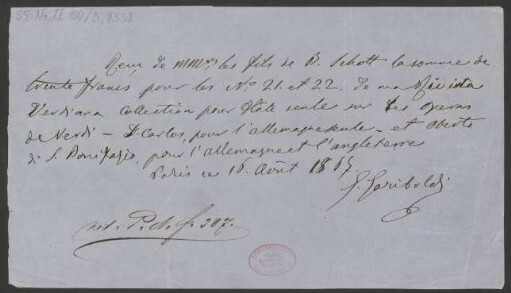 55 Nachl 100/B, 8358
Reçu de MMrs les fils de B. Schott la somme de
trente francs pour les No 21. et 22. de ma Rivista
Verdiana collection pour flûte seule sur les operas
de Verdi – D. Carlos, pour l'allemagne seule – et Oberto
di S. Bonifazio, pour l'allemagne et l'angleterre
Paris ce 16. Août 1867
G. Gariboldi
not. P. ch. f. 387.